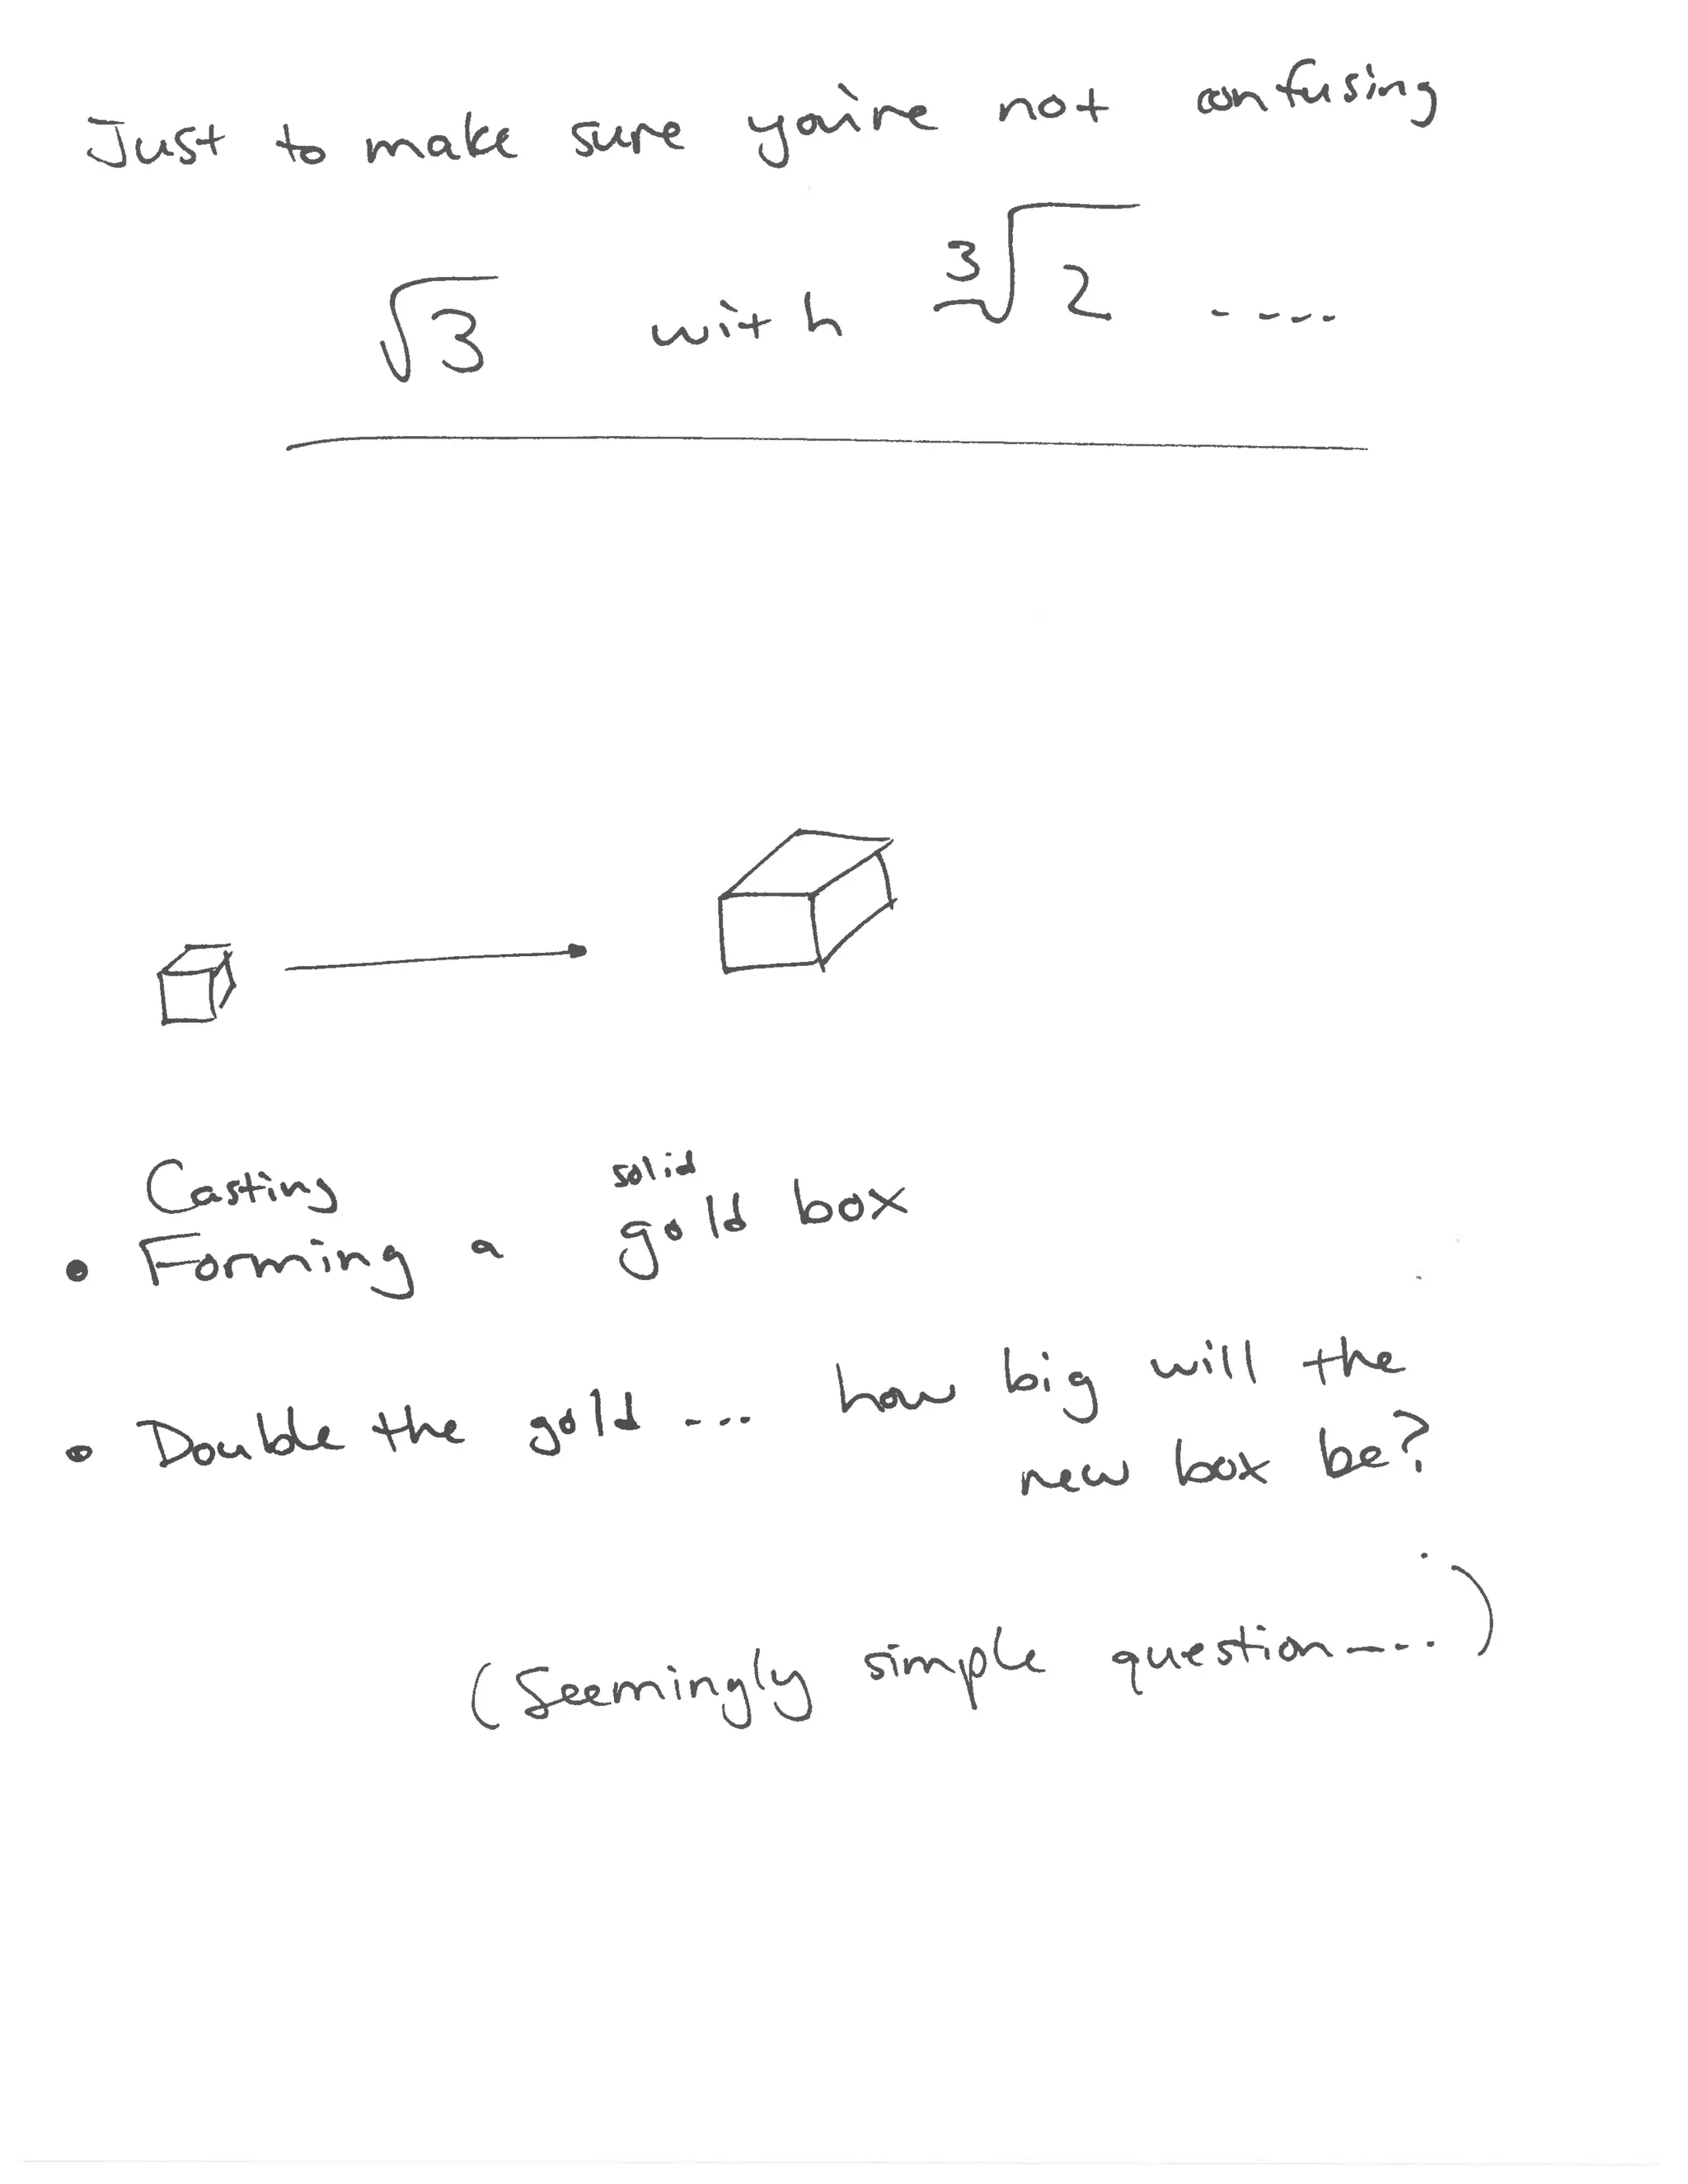 Just to make sure you're not confusing
√3 with ∛2 ....
Casting solid
• Forming a gold box
• Double the gold ... how big will the
new box be?
(Seemingly simple question....)